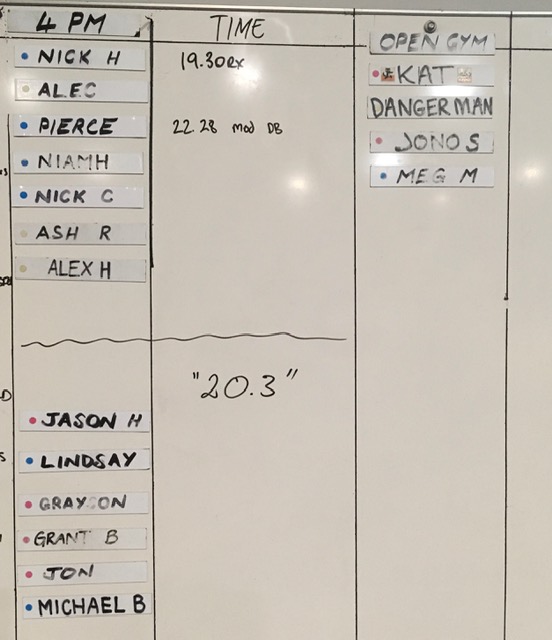 4 PM
TIME
OPEN GYM
NICK H
19.30 rx
KAT
ALEC
DANGERMAN
PIERCE
22.28 mod DB
JONO S
NIAMH
MEG M
NICK C
ASH R
ALEX H
"20.3"
JASON H
LINDSAY
GRAYSON
GRANT B
JON
MICHAEL B